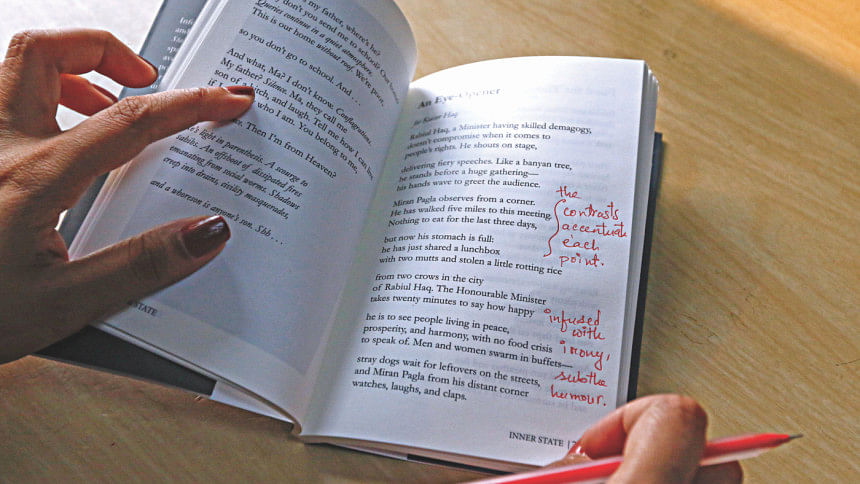 my father, where's he?
don't you send me to school?
Queries continue in a quiet atmosphere.
This is our home without roof. We're poor,
so you don't go to school. And . . .
And what, Ma? I don't know. Conflagration.
My father? Silence. Ma, they call me
son of a bitch, and laugh. Tell me how I can live,
if I who I am. You belong to me,
Then I'm from Heaven?
light in parenthesis. A scourge to
sahibs. An offshoot of dissipated fires
emanating from social worms. Shadows
creep into drains, civility masquerades,
and a whoreson is anyone's son. Shh . . .
STATE
An Eye-Opener
for Kaiser Haq
Rabiul Haq, a Minister having skilled demagogy,
doesn't compromise when it comes to
people's rights. He shouts on stage,
delivering fiery speeches. Like a banyan tree,
he stands before a huge gathering—
his hands wave to greet the audience.
Miran Pagla observes from a corner.
He has walked five miles to this meeting.
Nothing to eat for the last three days,
but now his stomach is full:
he has just shared a lunchbox
with two mutts and stolen a little rotting rice
from two crows in the city
of Rabiul Haq. The Honourable Minister
takes twenty minutes to say how happy
he is to see people living in peace,
prosperity, and harmony, with no food crisis
to speak of. Men and women swarm in buffets—
stray dogs wait for leftovers on the streets,
and Miran Pagla from his distant corner
watches, laughs, and claps.
the
contrasts
accentuate
each
point.
infused
with
irony,
subtle
humour.
INNER STATE |